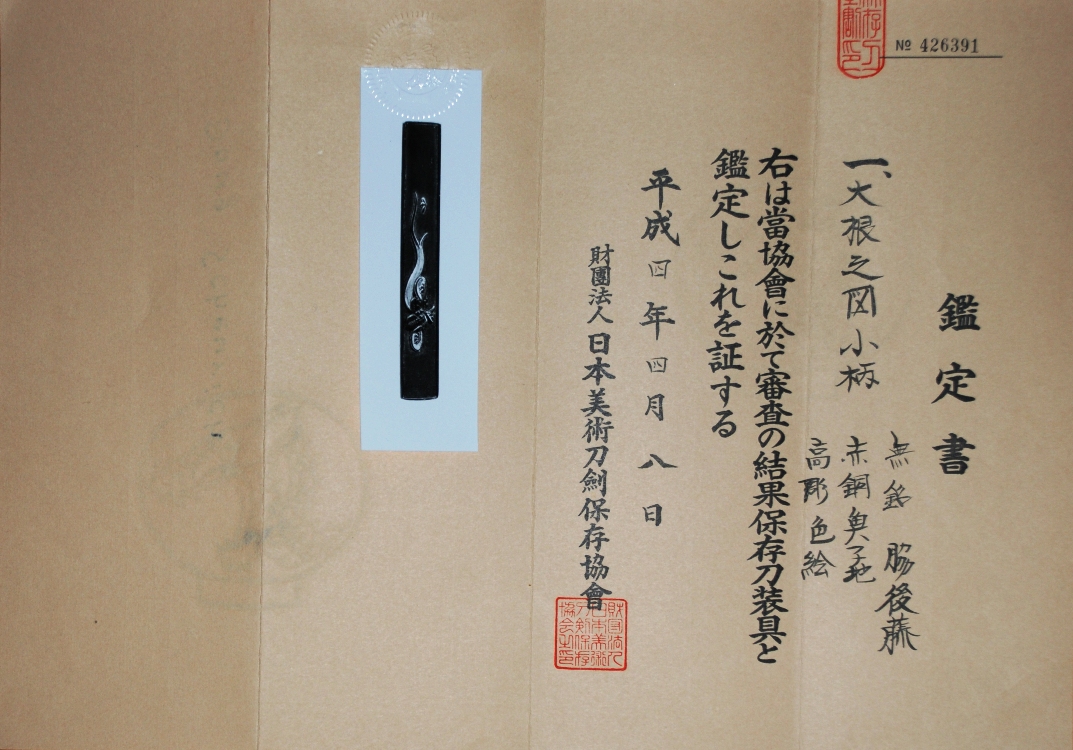 № 426391
鑑定書
一、大根之図小柄
無銘 脇後藤
赤銅魚子地
高彫色絵
右は當協會に於て審査の結果保存刀装具と
鑑定しこれを証する
平成四年四月八日
財團法人 日本美術刀劍保存協會
財団法人
日本美術
刀剣保存
協会之印